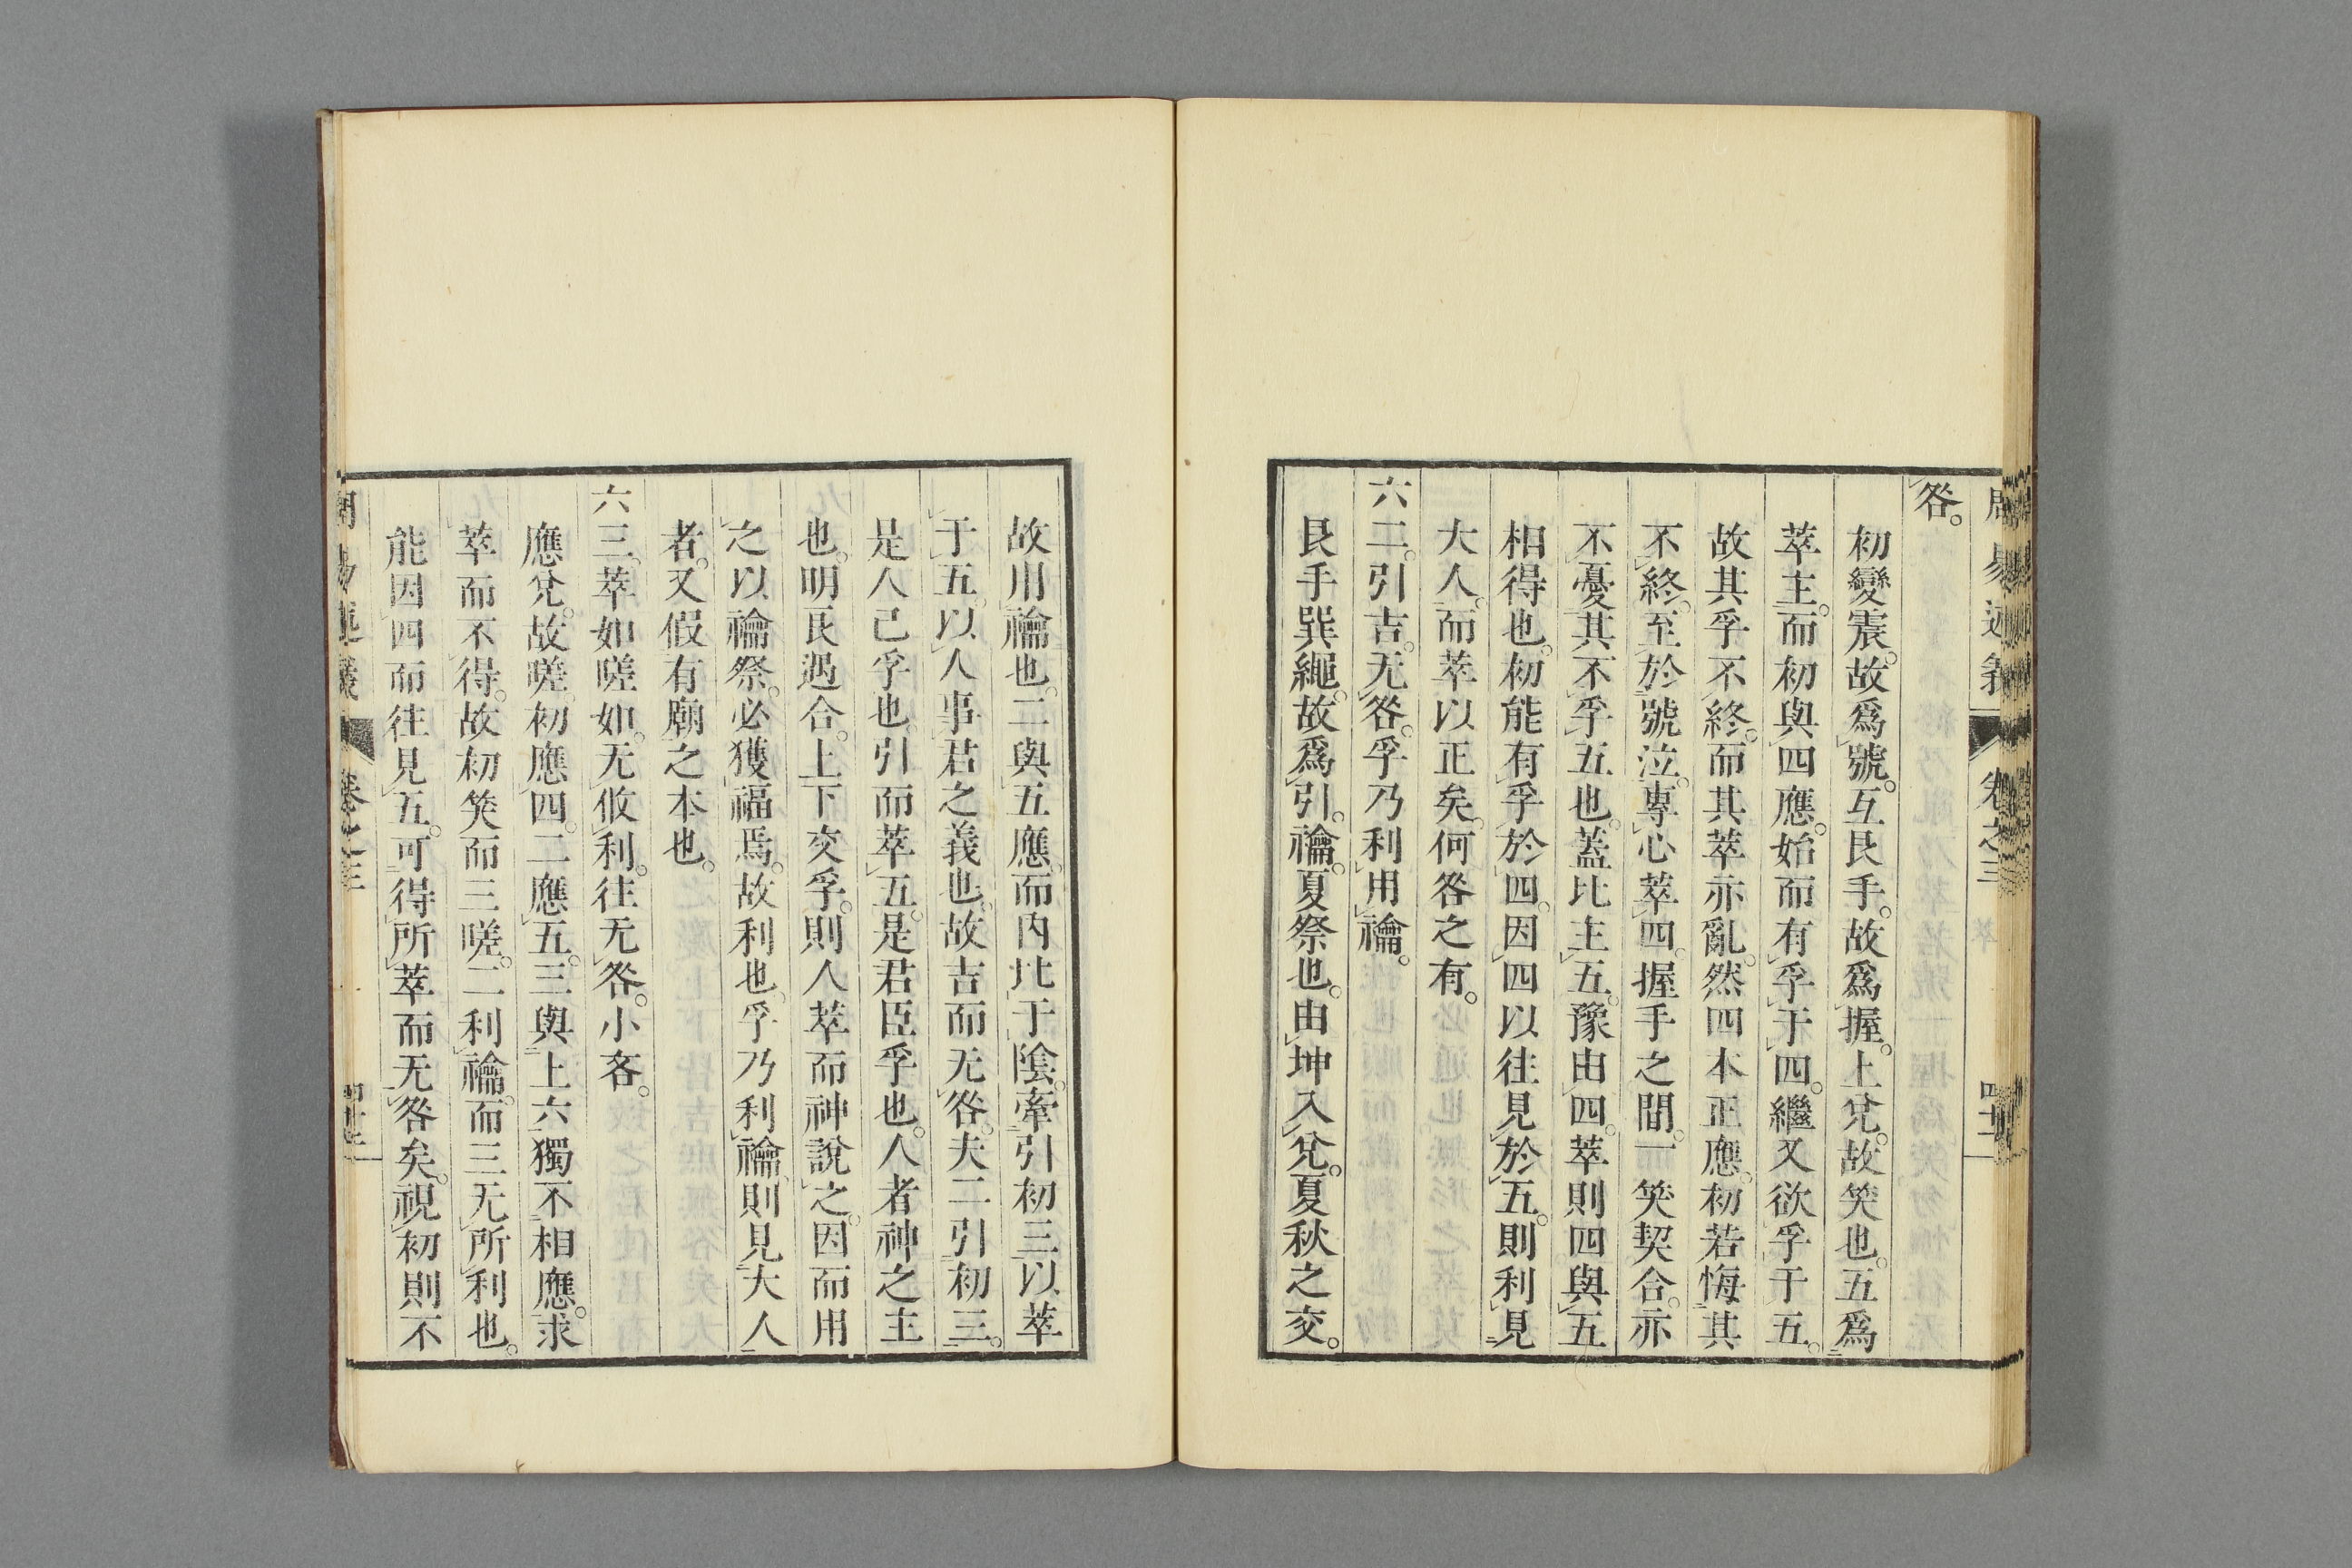 周易述義 卷之三 萃 四十二
咎。
初變震。故爲號。互艮手。故爲握。上兌。故笑也。五爲
萃主。而初與四應。始而有孚于四。繼又欲孚于五。
故其孚不終。而其萃亦亂。然四本正應。初若悔其
不終。至於號泣。專心萃四。握手之間。一笑契合。亦
不憂其不孚五也。蓋比主五。豫由四。萃則四與五
相得也。初能有孚於四。因四以往見於五。則利見
大人。而萃以正矣。何咎之有。
六二。引吉。无咎。孚乃利用禴。
艮手巽繩。故爲引。禴。夏祭也。由坤入兌。夏秋之交。
故用禴也。二與五應。而内比于陰。牽引初三以萃
于五。以人事君之義也。故吉而无咎。夫二引初三。
是人己孚也。引而萃五。是君臣孚也。人者神之主
也。明艮遇合。上下交孚。則人萃而神說之。因而用
之以禴祭。必獲福焉。故利也。孚乃利禴。則見大人
者。又假有廟之本也。
六三。萃如嗟如。无攸利。往无咎。小吝。
應兌。故嗟。初應四。二應五。三與上六獨不相應。求
萃而不得。故初笑而三嗟。二利禴。而三无所利也。
能因四而往見五。可得所萃而无咎矣。視初則不
周易述義 卷之三